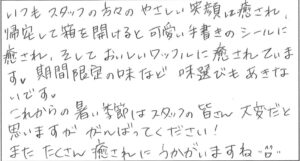 いつもスタッフの方々のやさしい笑顔に癒され、
帰宅して箱を開けると可愛い手書きのシールに
癒され、そしておいしいワッフルに癒されていま
す。期間限定の味など 味選びもあきな
いです。
これからの暑い季節はスタッフの皆さん 大変だと
思いますが がんばってください！
また たくさん 癒されに うかがいますね